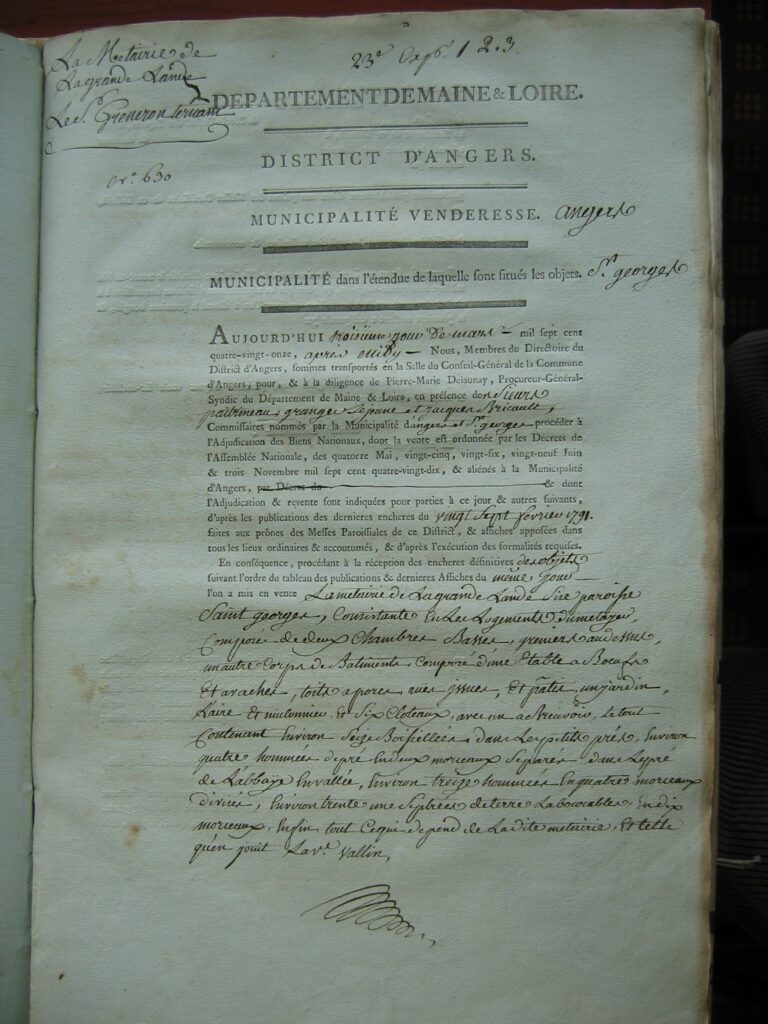 La Metairie de
La grande Lande
Le Sr. Greneron
No. 630
23e Cap. 1 2.3
DÉPARTEMENT DE MAINE & LOIRE.
DISTRICT D'ANGERS.
MUNICIPALITÉ VENDERESSE. angers
MUNICIPALITÉ dans l'étendue de laquelle sont situés les objets. St. georges
AUJOURD'HUI troisieme jour De mars — mil sept cent
quatre-vingt-onze, après midy — Nous, Membres du Directoire du
District d'Angers, sommes transportés en la Salle du Conseil-Général de la Commune
d'Angers, pour, & à la diligence de Pierre-Marie Delaunay, Procureur-Général-
Syndic du Département de Maine & Loire, en présence des Sieurs
patrineau granger Lejeune et Jacques Bricault,
Commissaires nommés par la Municipalité d'angers et St. georges procéder à
l'Adjudication des Biens Nationaux, dont la vente est ordonnée par les Décrets de
l'Assemblée Nationale, des quatorze Mai, vingt-cinq, vingt-six, vingt-neuf Juin
& trois Novembre mil sept cent quatre-vingt-dix, & aliénés à la Municipalité
d'Angers, par Décret du — & dont
l'Adjudication & revente sont indiquées pour parties à ce jour & autres suivants,
d'après les publications des dernieres encheres du vingt Sept fevrier 1791.
faites aux prônes des Messes Paroissiales de ce District, & affiches apposées dans
tous les lieux ordinaires & accoutumés, & d'après l'exécution des formalités requises.
En conséquence, procédant à la réception des encheres définitives des objets
suivant l'ordre du tableau des publications & dernieres Affiches du même jour —
l'on a mis en vente La metairie de La grande Lande Size paroisse
Saint georges, Consistante en Les Logements du metayer,
Composés de deux Chambres Basses, greniers au dessus,
un autre Corps de Batiments, Composé d'une Etable a Boeufs
Et a vaches, toits a porcs, rues issues, Et pâtis, un jardin,
L'aire Et Et Six Cloteaux, avec un abreuvoir, Le tout
Contenant Environ Seize Boisselées, dans Les petits prés, Environ
quatre hommées de pré En deux morceaux Separés dans Le pré
de L'abbaye En vallée, Environ treize hommées En quatre morceaux
divisés, Environ trente une Septrées de terre Labourables, En dix
morceaux, Enfin tout Ce qui depend de La dite metairie, Et telle
qu'en jouit La ve. Vallin,